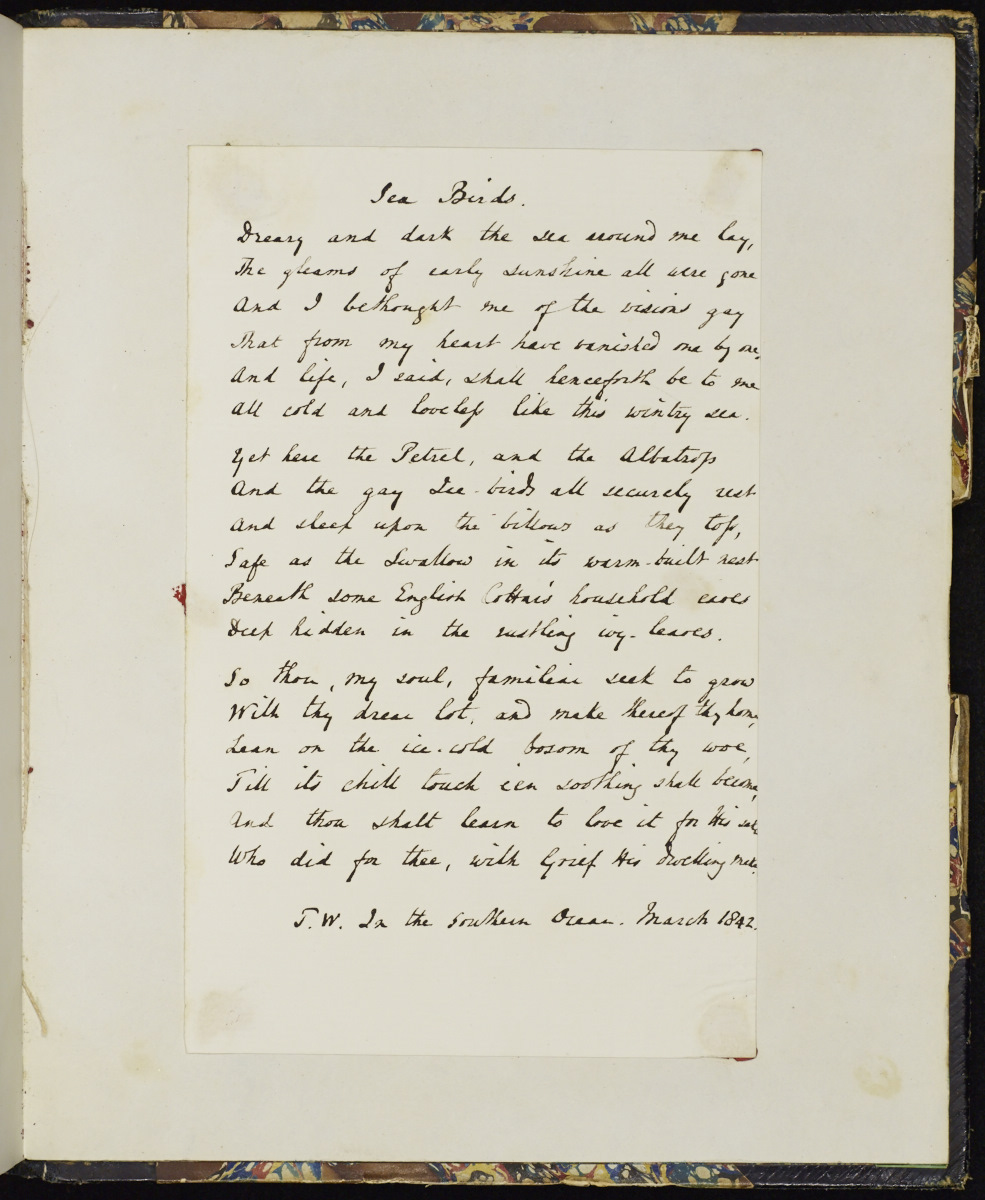 Sea Birds.
Dreary and dark the sea around me lay,
The gleams of early sunshine all were gone
And I bethought me of the visions gay
That from my heart have vanished one by one,
And life, I said, shall henceforth be to me
All cold and loveless like this wintry sea.
Yet here the Petrel, and the Albatross
And the gay Ice-birds all securely rest
And sleep upon the billows as they toss,
Safe as the Swallow in its warm-built nest
Beneath some English Cottar's household eaves
Deep hidden in the rustling ivy-leaves.
So thou, my soul, familiar seek to grow
With thy drear lot, and make thereof thy home,
Lean on the ice-cold bosom of thy woe,
Till its chill touch e'en soothing shall become,
And thou shalt learn to love it for His sake
Who did for thee, with Grief His dwelling make.
T. W. In the Southern Ocean. March 1842.